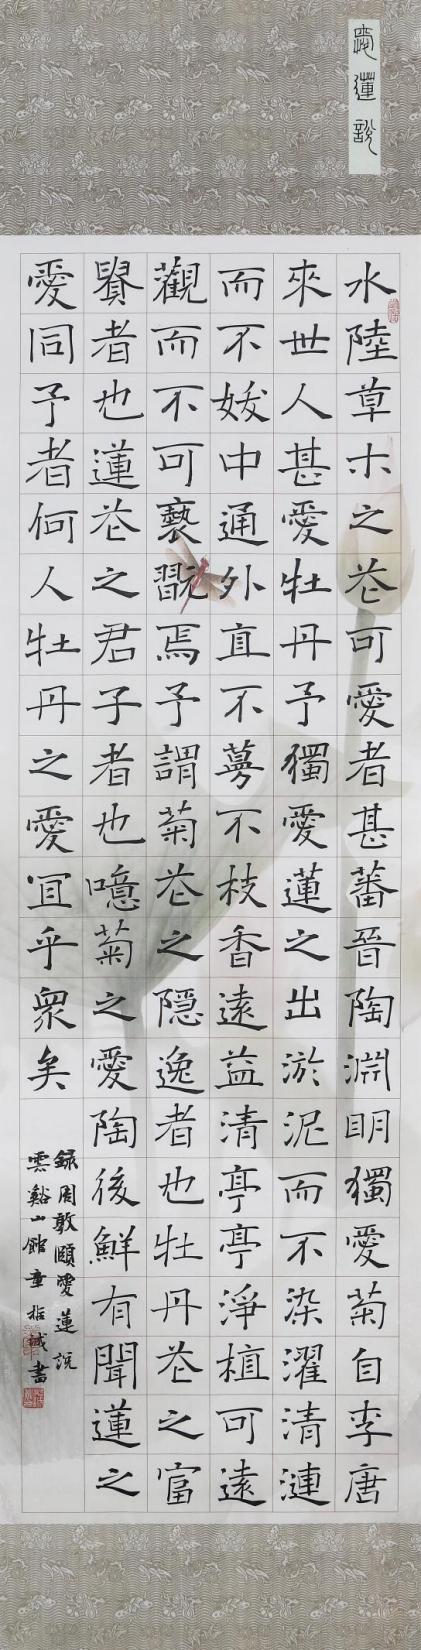 愛蓮說
水陸草木之花可愛者甚蕃晉陶淵明獨愛菊自李唐
來世人甚愛牡丹予獨愛蓮之出淤泥而不染濯清漣
而不妖中通外直不蔓不枝香遠益清亭亭淨植可遠
觀而不可褻翫焉予謂菊花之隱逸者也牡丹花之富
貴者也蓮花之君子者也噫菊之愛陶後鮮有聞蓮之
愛同予者何人牡丹之愛宜乎衆矣
錄周敦頤愛蓮說
雲谿山館書